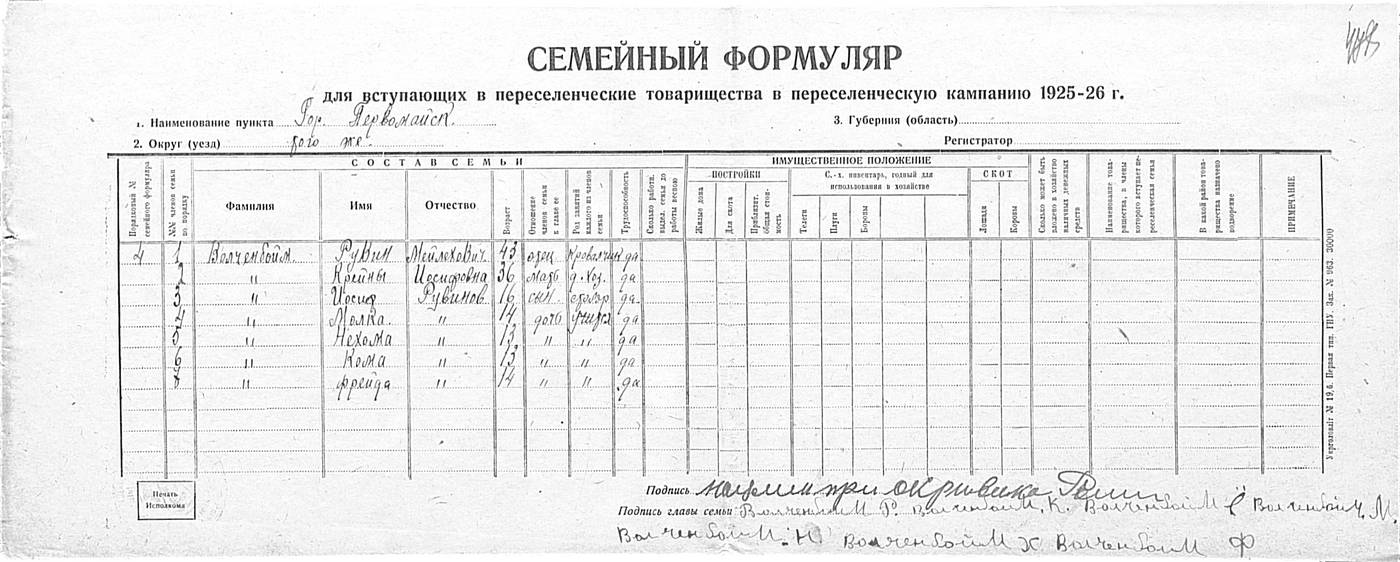 СЕМЕЙНЫЙ ФОРМУЛЯР
для вступающих в переселенческие товарищества в переселенческую кампанию 1925-26 г.
1. Наименование пункта Гор. Первомайск. 3. Губерния (область)
2. Округ (уезд) того же. Регистратор
СОСТАВ СЕМЬИ ИМУЩЕСТВЕННОЕ ПОЛОЖЕНИЕ
ПОСТРОЙКИ С.-х. инвентарь, годный для использования в хозяйстве СКОТ
Порядковый № семейного формуляра №№ членов семьи по порядку Фамилия Имя Отчество Возраст Отношение членов семьи к главе ее Род занятий каждого из членов семьи Трудоспособность Сколько работн. выдел. семья до работы весною Жилые дома Для скота Приблизит. общая стоимость Телеги Плуги Бороны Лошади Коровы Сколько может быть вложено в хозяйство наличных денежных средств Наименование товарищества, в члены которого вступает переселенческая семья В какой район товарищества назначено водворение ПРИМЕЧАНИЕ
4 1 Волченбойм. Рувин Мейлехович. 43 отец да
2 " Крейны Иосифовна 36 мать д. хоз. да
3 " Иосиф Рувинов. 16 сын. столяр да.
4 " Молка. " 14 дочь учится да
5 " Нехома " 13 " " да
6 " Кома " 13 " " да
7 " Фрейда " 14 " " да
Печать Исполкома
Подпись
Подпись главы семьи Волченбойм Р. Волченбойм. К. Волченбойм Волченбойм М.
Волченбойм. Н. Волченбойм Х Волченбойм Ф
Укрголовліт № 19,6. Первая тип. ГПУ. Зак. № 963. 30000